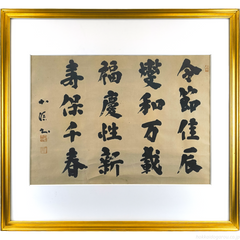 令節佳辰
燮和万載
福慶惟新
壽保千春